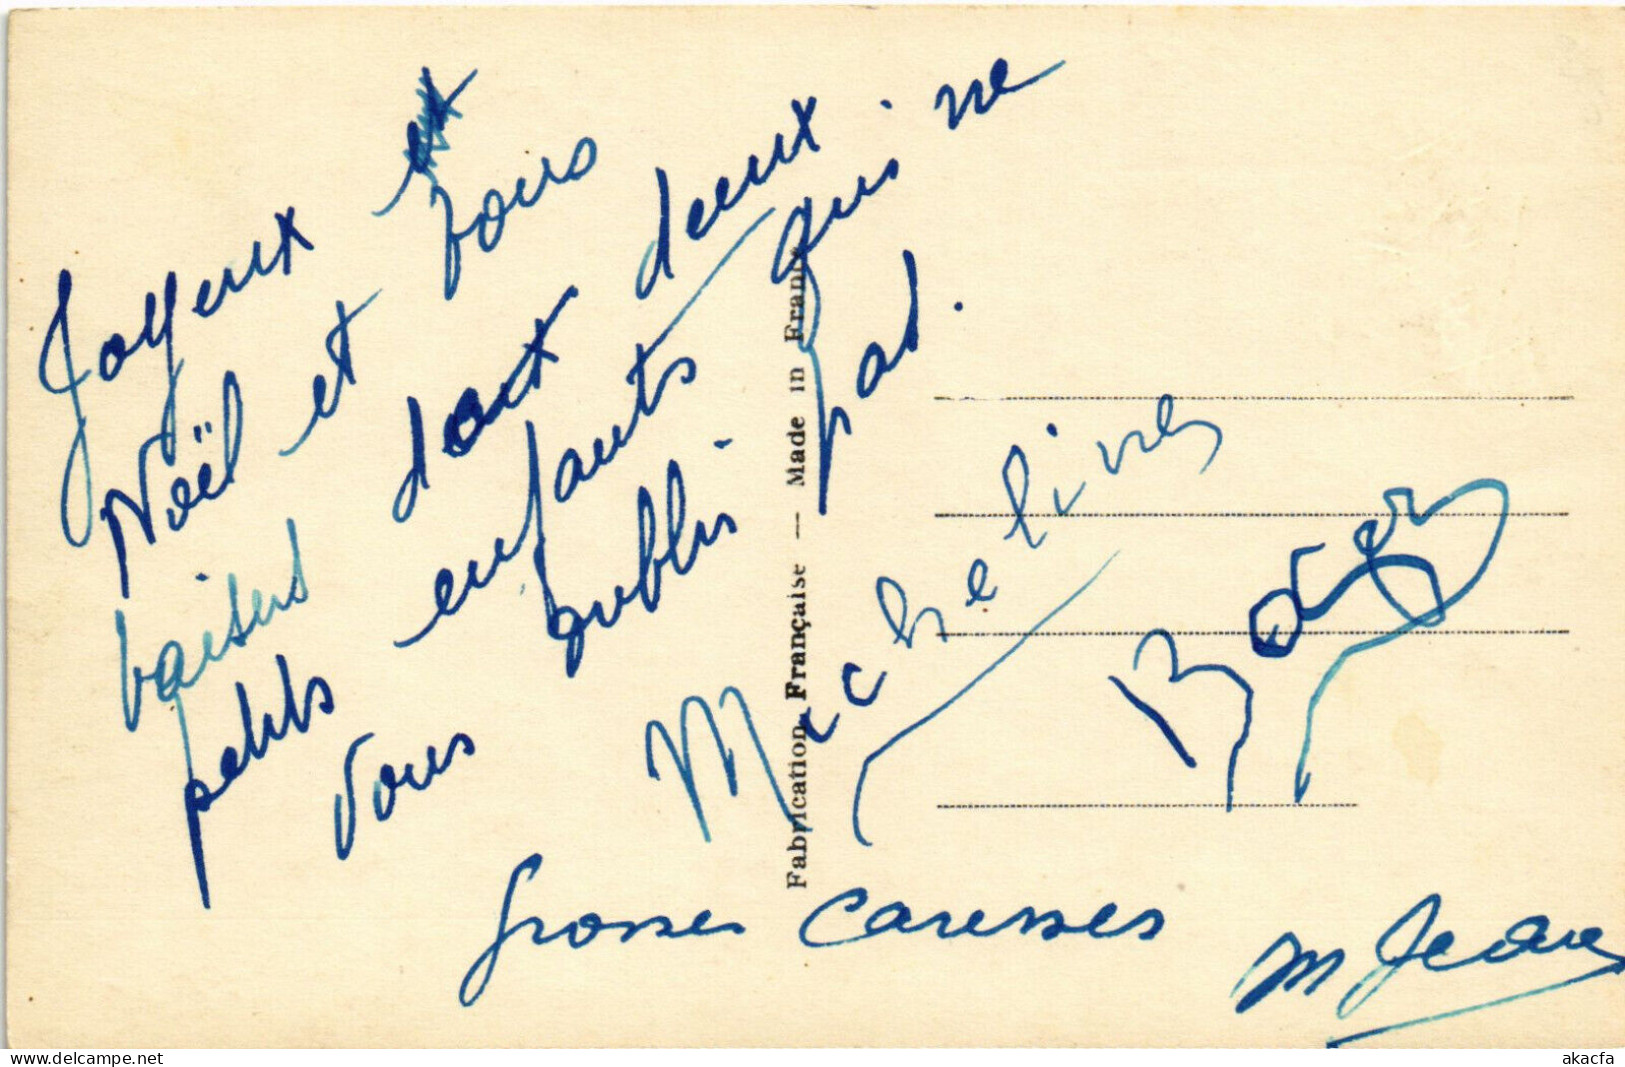 Joyeux et
Noël et bons
baisers dont deux
petits enfants qui ne
vous oublis pas.
Micheline
Grosses Caresses
M Jean
Fabrication Française — Made in France
delcampe.net
akacfa